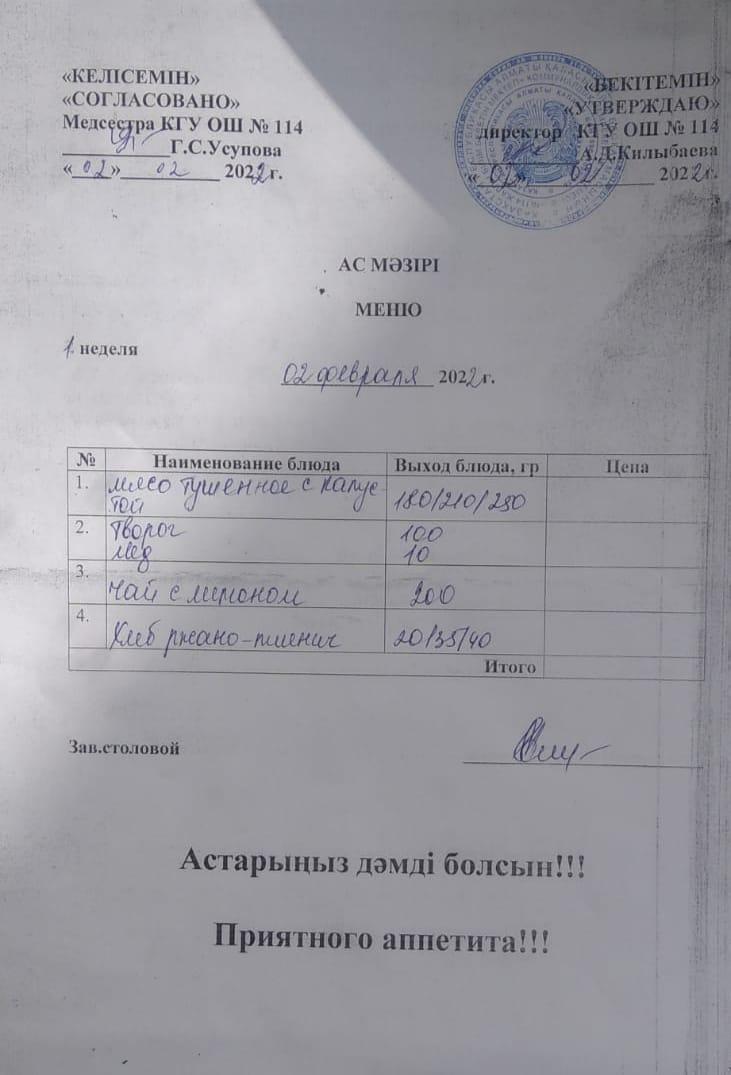 «КЕЛІСЕМІН»
«СОГЛАСОВАНО»
Медсестра КГУ ОШ № 114
Г.С.Усупова
«02» 02 2022г.
«БЕКІТЕМІН»
«УТВЕРЖДАЮ»
директор КГУ ОШ № 114
А.Д.Килыбаева
«02» 02 2022г.
АС МӘЗІРІ
МЕНЮ
1. неделя
02 февраля 2022г.
№ Наименование блюда Выход блюда, гр Цена
1. мясо тушенное с капус-
той 180/210/250
2. Творог 100
мёд 10
3.
Чай с лимоном 200
4.
Хлеб ржано-пшенич 20/35/40
Итого
Зав.столовой
Астарыңыз дәмді болсын!!!
Приятного аппетита!!!